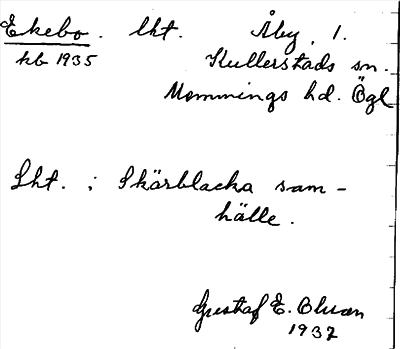 Ekebo. lht. Åby, 1.
kb 1935 Kullerstads sn.
Memmings hd. Ögl
Lht. i Skärblacka sam-
hälle.
Gustaf E. Olsson
1937